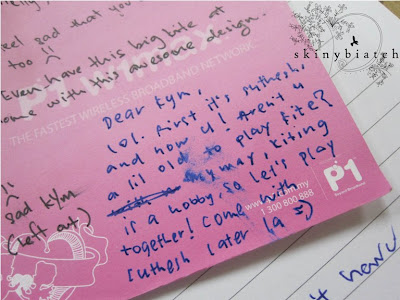 eel sad that you
too !!
Even have this big kite at
ome with this awesome design.
skinybiatch
P1 W1MAX
THE FASTEST WIRELESS BROADBAND NETWORK
Dear Kym,
lol. First it's Suthesh,
and now U! Aren't u
a lil old to play kite?
Anyway, kiting
is a hobby, so let's play
together! Come with
Suthesh later (a =)
sad Kym
(left out)
www.
.my
1 300 800 888
P1